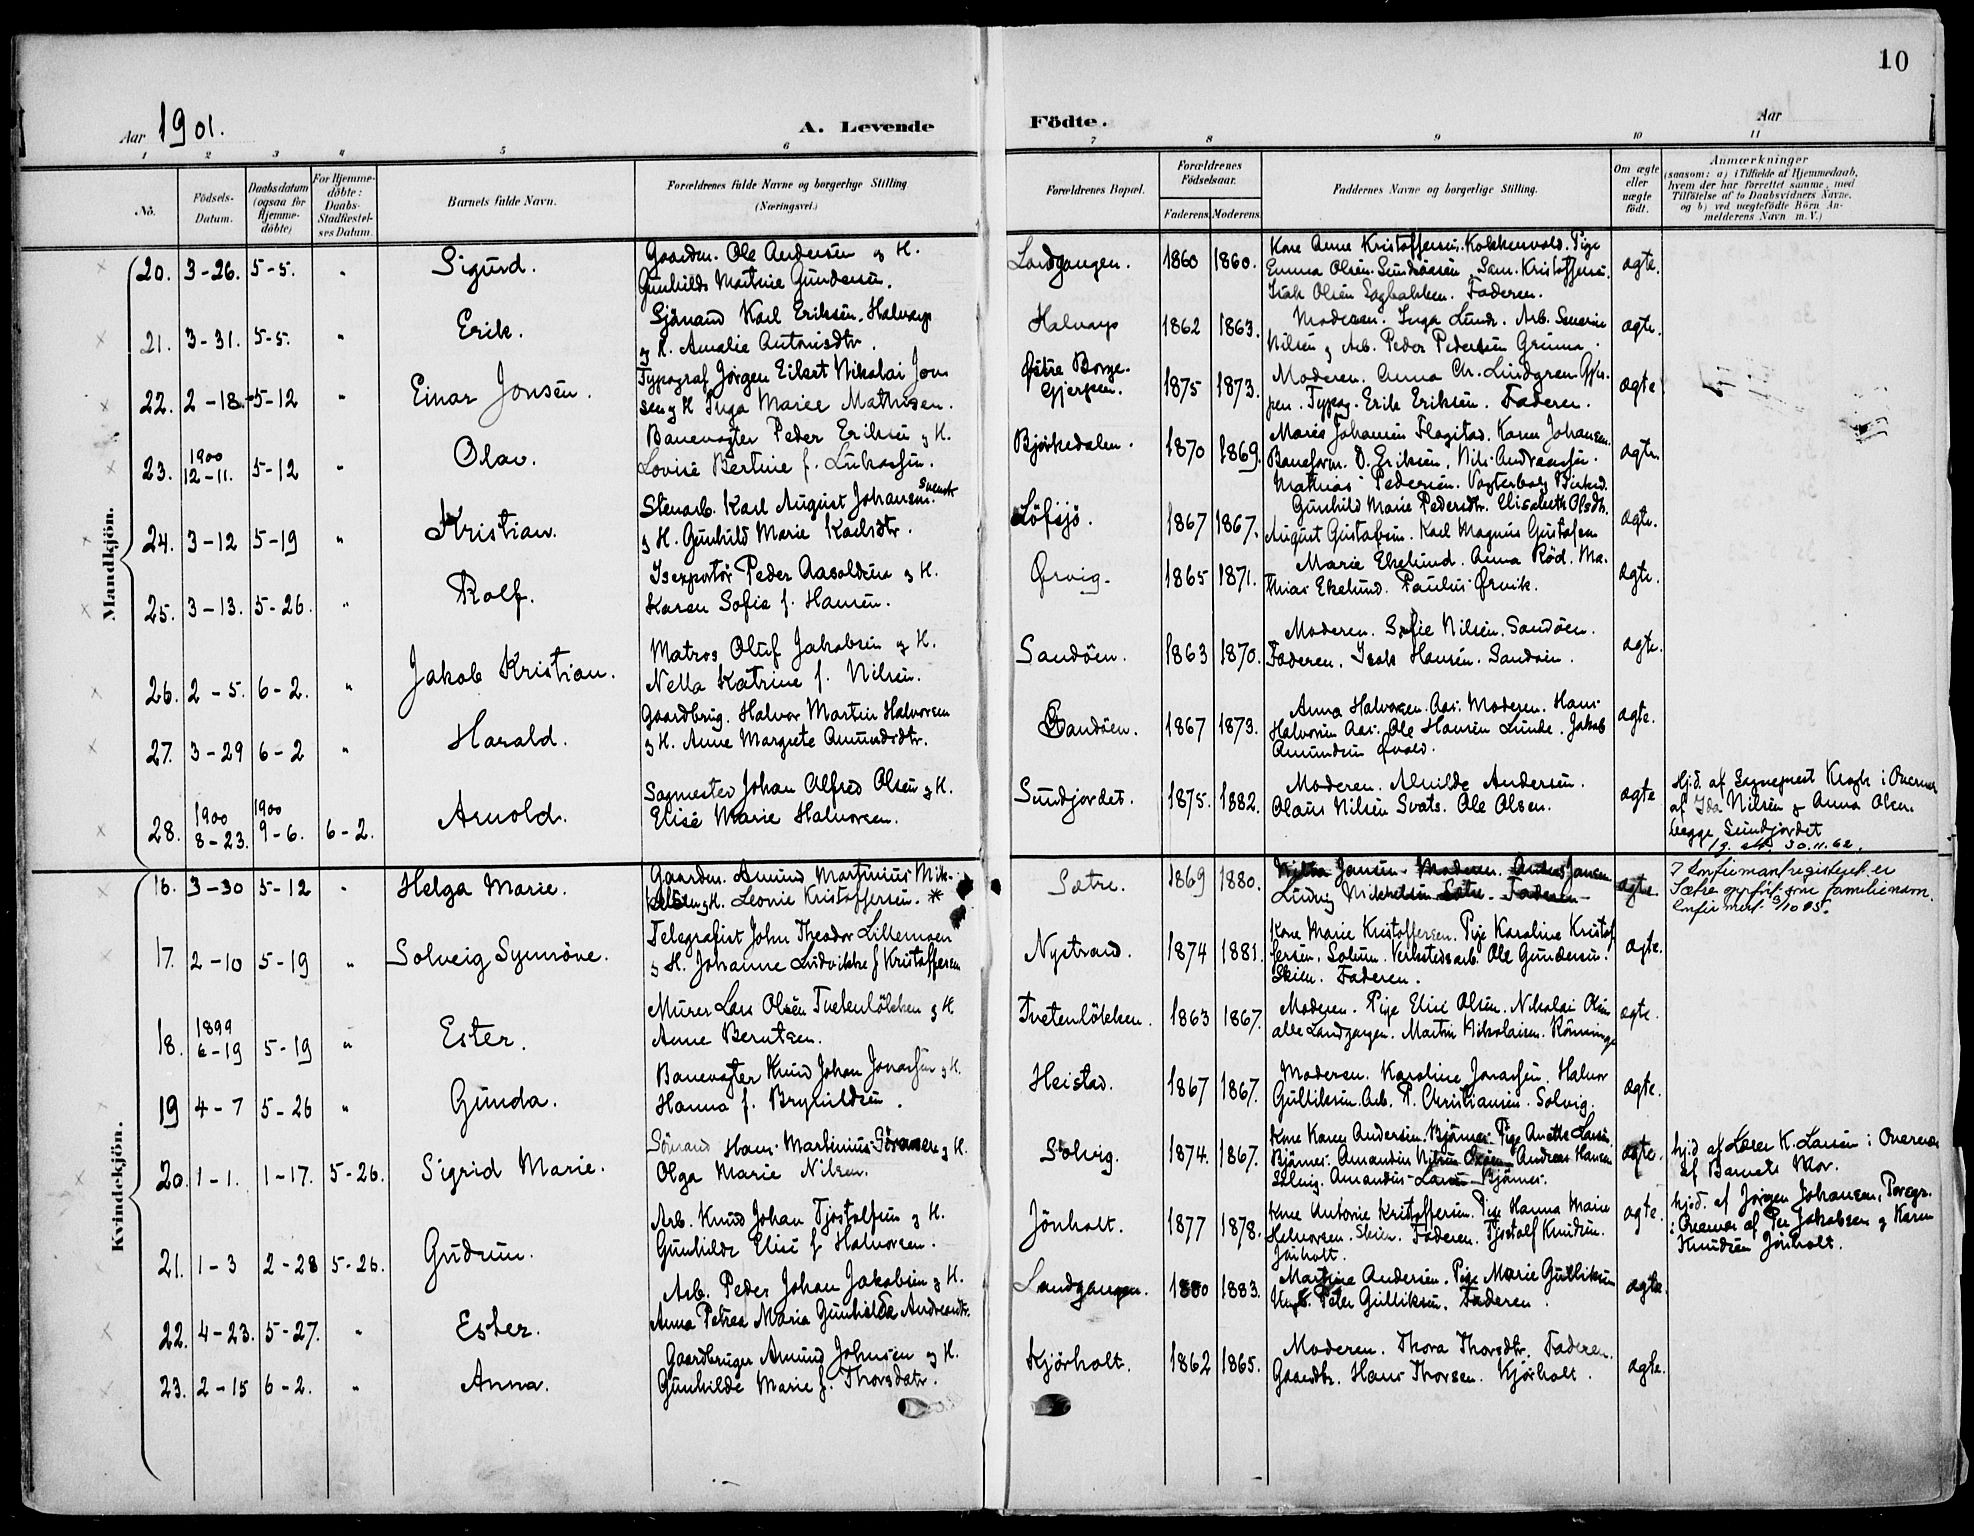 10
Aar 1901.
A. Levende Födte.
Aar
1 2 3 4 5 6 7 8 9 10 11
No.
Födsels-Datum.
Daabsdatum (ogsaa for Hjemme-döbte)
For Hjemme-döbte: Daabs-Stadfæstel-ses Datum.
Barnets fulde Navn.
Forældrenes fulde Navne og borgerlige Stilling
(Næringsvei.)
Forældrenes Bopæl.
Forældrenes Födselsaar.
Faderens. Moderens.
Faddernes Navne og borgerlige Stilling.
Om ægte eller uægte födt.
Anmærkninger
(saasom: a) i Tilfælde af Hjemmedaab,
hvem der har forrettet samme, med
Tilföielse af to Daabsvidners Navne,
og b) ved uægtefödte Börn An-
melderens Navn m. V.)
Mandkjön.
20. 3-26. 5-5. " Sigurd.
Gaardm. Ole Andersen og H.
Gunhild Martine Gundersen.
Landgangen. 1860 1860.
Kone Anne Kristoffersen. Kokkersvold. Pige
Emma Olsen. Sundsaasen. Sam. Kristoffersen.
Isak Olsen Sagbakken. Faderen.
ægte.
21. 3-31. 5-5. " Erik.
Sjömand Karl Eriksen. Halvarp
og H. Amalie Antonisdtr.
Halvarp 1862 1863.
Moderen. Inga Lund. Arb. Severin
Nilsen og Arb. Peder Pedersen Grinna.
ægte.
22. 2-18. 5-12 " Einar Jonsen.
Typograf Jörgen Eilert Nikolai Jon
sen og H Inga Marie Mathisen.
Østre Borge. Gjerpen. 1875 1873.
Moderen. Anna Chr. Lindgren Gjer-
pen. Typog. Erik Eriksen. Faderen.
ægte
23. 1900 12-11. 5-12 " Olav.
Banevogter Peder Eriksen og H.
Lovise Bertine f. Lukassen.
Bjørkedalen. 1870 1869.
Marie Johansen Flogstad. Karen Johansen.
Baneform. O. Eriksen. Nils Andreassen.
Mathias Pedersen. Vogterbolig Birked.
ægte.
24. 3-12 5-19 " Kristian.
Stenarb. Karl August Johansen. Svensk
og H. Gunhild Marie Karlsdtr.
Löfsjö. 1867 1867.
Gunhild Marie Pedersdtr. Elisabeth Olsdtr.
August Gustafsen. Karl Magnus Gustafsen
ægte.
25. 3-13. 5-26. " Rolf.
Isexportör Peder Aasoldsen og H.
Karen Sofie f. Hansen.
Ørvig. 1865 1871.
Marie Ekelund. Anna Röd. Ma-
thias Ekelund. Paulus Ørvik.
ægte.
26. 2-5. 6-2. " Jakob Kristian.
Matros Oluf Jakobsen og H.
Nella Katrine f. Nilsen.
Sandöen. 1863 1870.
Moderen. Sofie Nilsen. Sandöen.
Faderen. Isak Hansen. Sandöen.
ægte.
27. 3-29 6-2 " Harald.
Gaardbrug. Halvor Martin Halvorsen
og H. Anne Margrete Amundsdtr.
Sandöen. 1867 1873.
Anna Halvorsen. Aas. Moderen. Hans
Halvorsen Aas. Ole Hansen Lunde. Jakob
Amundsen Qvald.
ægte.
28. 1900 8-23. 1900 9-6. 6-2. Arnold.
Sagmester Johan Alfred Olsen og H.
Elise Marie Halvorsen.
Sundjordet. 1875. 1882.
Moderen. Alvilde Andersen.
Olaus Nilsen Svats. Ole Olsen.
ægte
Hjd. af Sognepræst Krogh i Overvær
af Ida Nilsen og Anna Olsen.
begge Sundjordet
30.11.62.
Kvindekjön.
16. 3-30 5-12 " Helga Marie.
Gaardm. Amund Martinius Mik-
kelsen og H. Leonie Kristoffersen. *
Sætre. 1869 1880.
Jansen. Moderen. Anders Jansen
Ludvig Mikkelsen Sætre. Faderen
ægte.
I konfirmantregisteret er
Sætre oppfört som familienavn.
17. 2-10 5-19 " Solveig Synnöve.
Telegrafist John Theodor Lillemoen
og H. Johanne Ludvikke f Kristoffersen
Nystrand. 1874 1881.
Kone Marie Kristoffersen. Pige Karoline Kristof
fersen. Solum. Verkstedsarb. Ole Gundersen.
Skien. Faderen.
ægte.
18. 1899 6-19 5-19 " Ester.
Murer Lars Olsen Tvetenlökken og H
Anne Berntsen.
Tvetenlökken. 1863 1867.
Moderen. Pige Elise Olsen. Nikolai Olsen
alle Landgangen. Martin Nikolaisen. Rönninge
ægte.
19 4-7 5-26 " Gunda.
Banevogter Knud Johan Jonassen og H.
Hanna f. Brynildsen.
Heistad. 1867 1867.
Moderen. Karoline Jonassen. Halvor
Gulliksen. Arb. P. Christiansen. Solvig.
ægte.
20. 1-1. 1-17. 5-26. Sigrid Marie.
Sömand Hans Martinius Göransen og H.
Olga Marie Nilsen.
Solvig. 1874. 1867.
Kone Karen Andersen. Bjönnes. Pige Anette Larsen.
Bjönnes. Amandus Andreas Hansen
Solvig. Amandus Larsen Bjönnes.
ægte.
hjd af Lærer K. Larsen i Overvær
af Barnets Mor.
21. 1-3 2-28 5-26. Gudrun.
Arb. Knud Johan Tjostolfsen og H.
Gunhilde Elise f. Halvorsen.
Jönholt. 1877 1878.
Kone Antonie Kristoffersen. Pige Hanna Marie
Halvorsen. Skien. Faderen. Tjostolf Knudsen.
Jönholt.
ægte.
hjd. af Jörgen Johansen, Porsgr.
i Overvær af Per Jakobsen og Karen
Knudsen Jönholt.
22. 4-23. 5-27. " Ester.
Arb. Peder Johan Jakobsen og H.
Anna Petrea Maria Gunhilda Andreasdtr.
Landgangen. 1880 1883.
Martine Andersen. Pige Marie Gulliksen
Ungk. Peter Gulliksen. Faderen.
ægte.
23. 2-15 6-2. " Anna.
Gaardbruger Amund Johnsen og H.
Gunhilde Marie f. Thorsdatr.
Kjörholt. 1862 1865.
Moderen. Thora Thorsdtr. Faderen.
Gaardbr. Hans Thorsen. Kjörholt.
ægte.